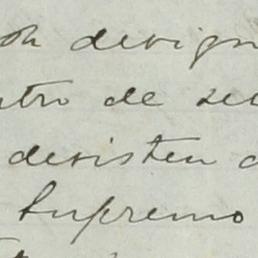 design
ntro de se
desisten
Supremo